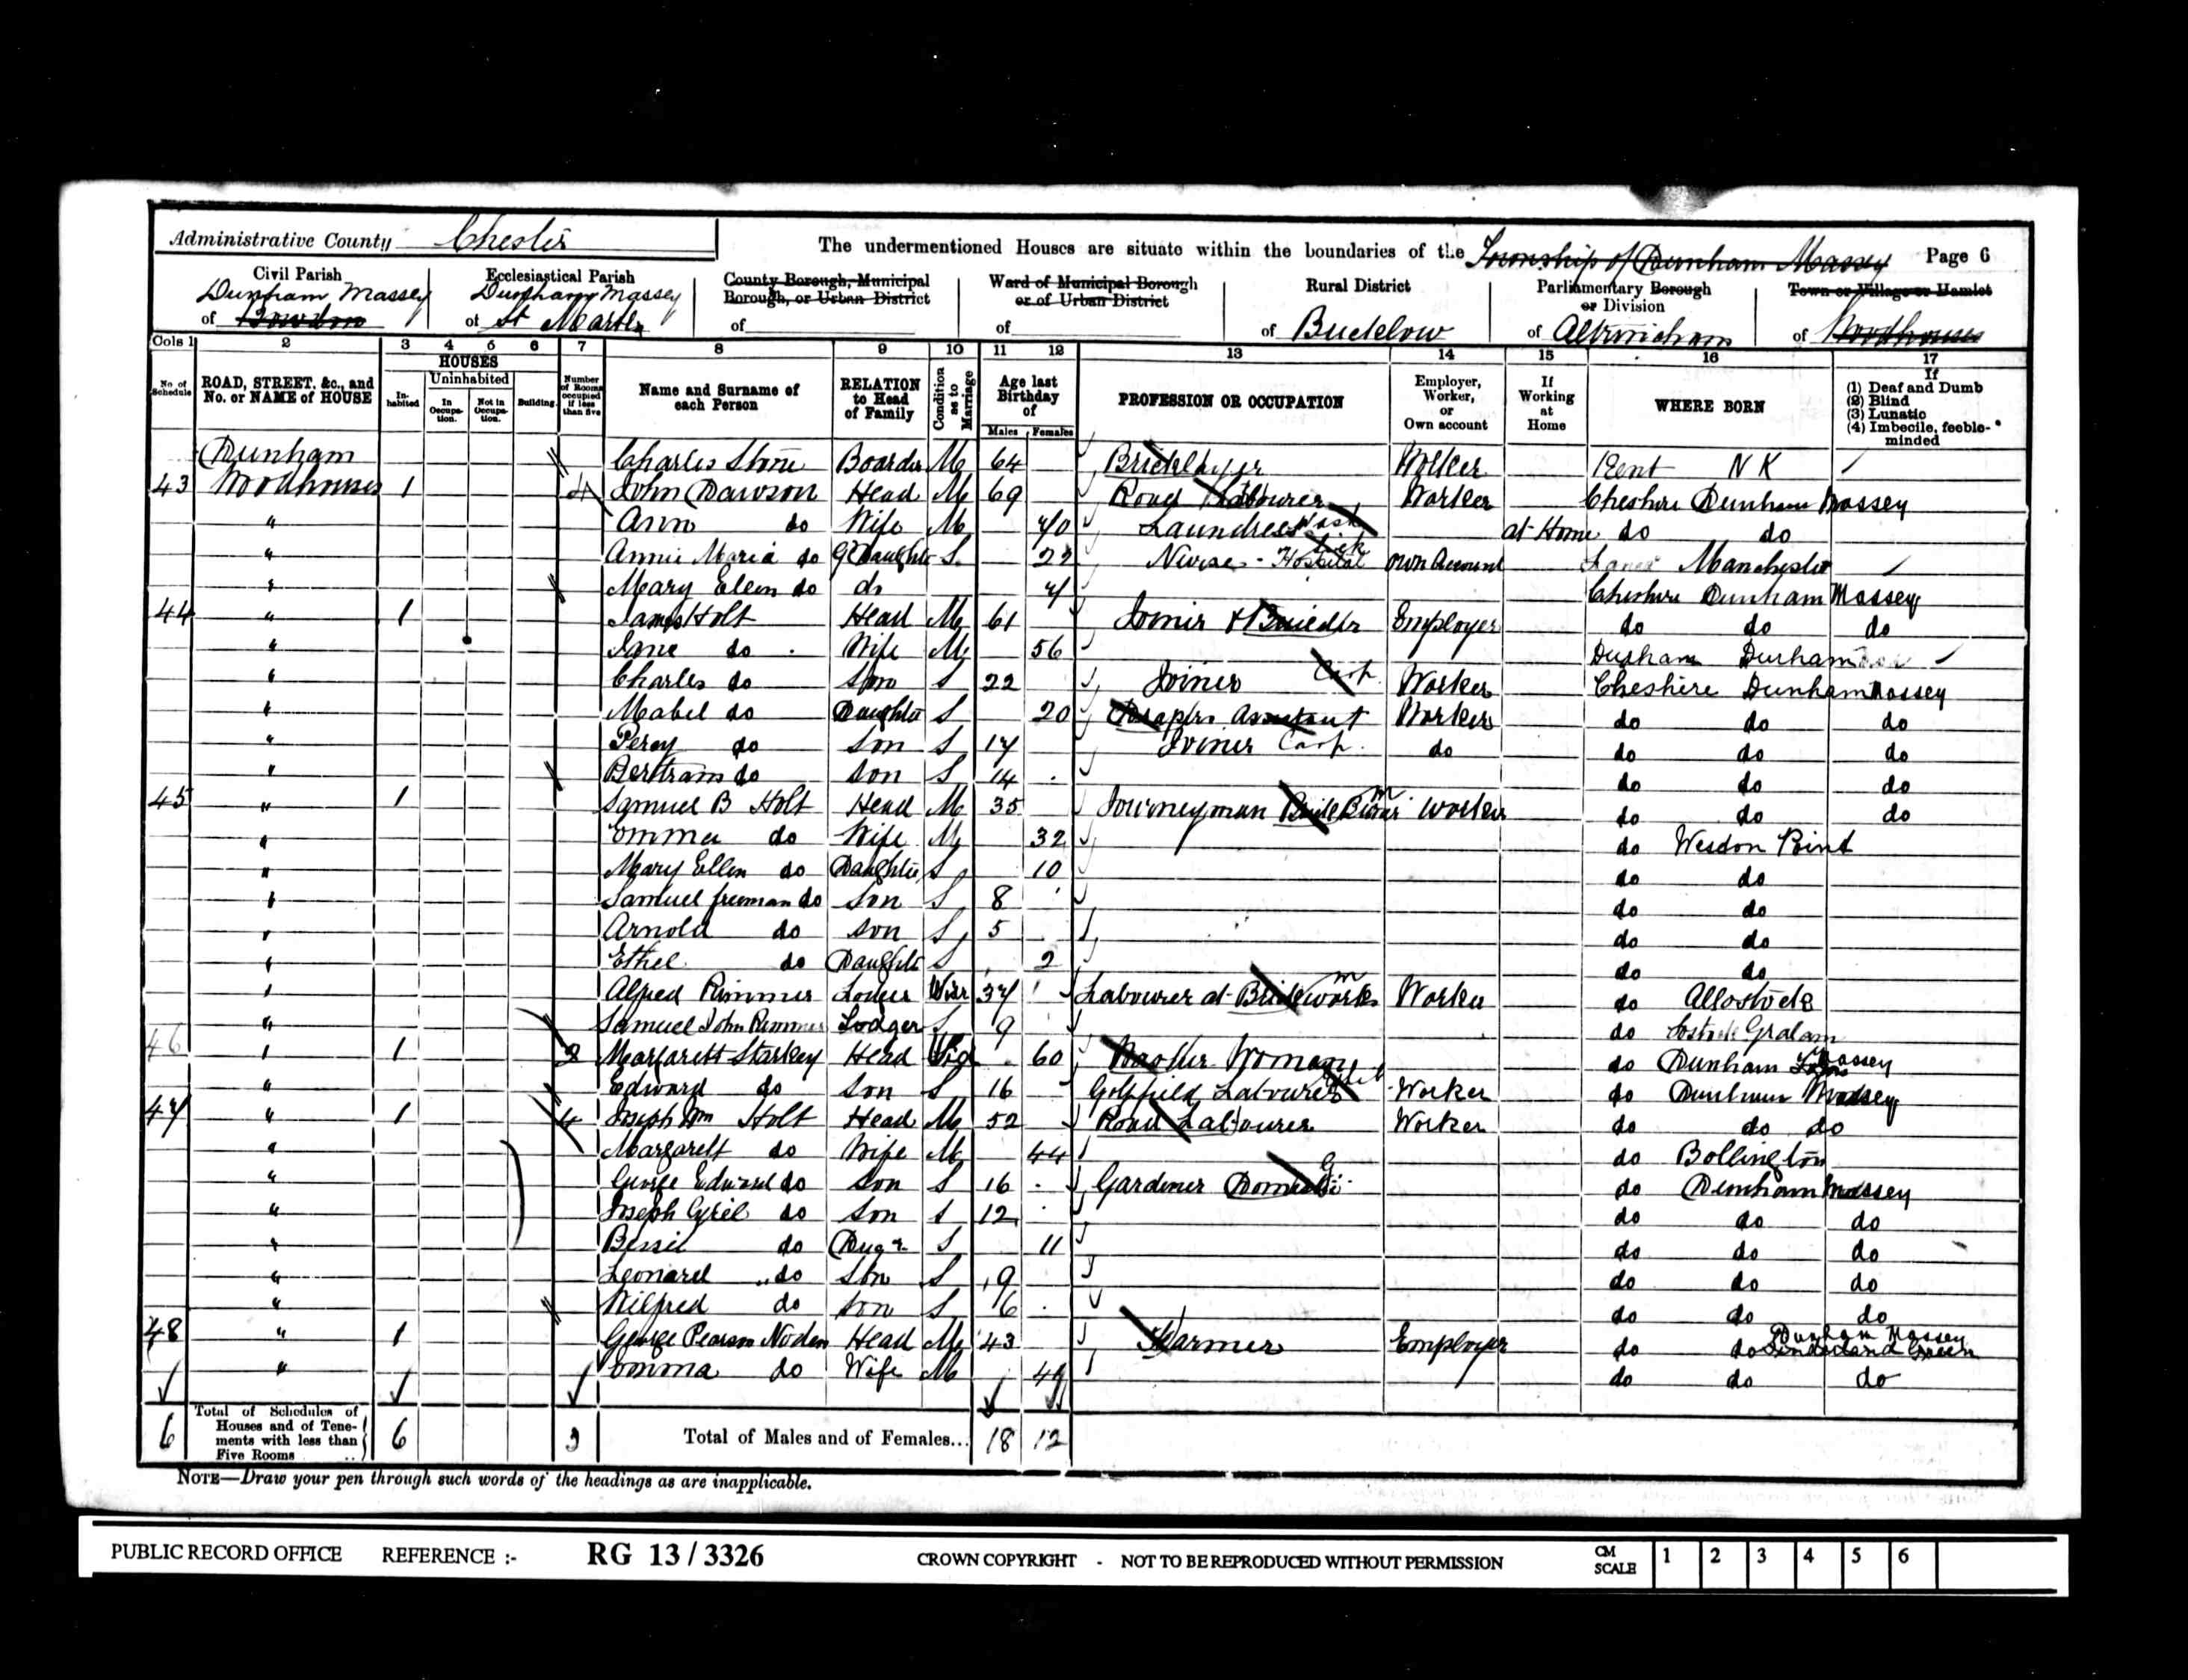 Administrative County Chester
The undermentioned Houses are situate within the boundaries of the Township of Dunham Massey Page 6
Civil Parish Ecclesiastical Parish County Borough, Municipal Borough, or Urban District Ward of Municipal Borough or of Urban District Rural District Parliamentary Borough or Division Town or Village or Hamlet
of Dunham Massey Bowdon of Dunham Massey St Marks of of of Bucklow of Altrincham of Woodhouses
Cols 1 2 3 4 5 6 7 8 9 10 11 12 13 14 15 16 17
No. of Schedule ROAD, STREET, &c., and No. or NAME of HOUSE HOUSES Inhabited Uninhabited In Occupation. Not in Occupation. Building. Number of Rooms occupied if less than five Name and Surname of each Person RELATION to Head of Family Condition as to Marriage Age last Birthday of Males Females PROFESSION OR OCCUPATION Employer, Worker, or Own account If Working at Home WHERE BORN If (1) Deaf and Dumb (2) Blind (3) Lunatic (4) Imbecile, feeble-minded
Dunham Charles Boarder M 64 Bricklayer Worker Kent N K
43 Woodhouses 1 4 John Dawson Head M 69 Road Labourer Worker Cheshire Dunham Massey
" Ann do Wife M 70 Laundress Wash at Home do do
" Annie Maria do G Daughter S 22 Nurse - Hospital Sick Own Account Lancs Manchester
" Mary Ellen do do 7 Cheshire Dunham Massey
44 " 1 James Holt Head M 61 Joiner & Builder Employer do do do
" Jane do Wife M 56 Durham Durham
" Charles do Son S 22 Joiner Carp Worker Cheshire Dunham Massey
" Mabel do Daughter S 20 Drapers Assistant Worker do do do
" Percy do Son S 17 Joiner Carp. do do do do
" Bertram do Son S 14 do do do
45 " 1 Samuel B Holt Head M 35 Journeyman Worker do do do
" Emma do Wife M 32 do Weston Point
" Mary Ellen do Daughter S 10 do do
" Samuel freeman do Son S 8 do do
" Arnold do Son S 5 do do
" Ethel do Daughter S 2 do do
" Alfred Rimmer Lodger Widr 37 Labourer at Brickworks m Worker do Allostock
" Samuel John Rimmer Lodger S 9 do Lostock Gralam
46 " 1 2 Margarett Starkey Head Wid 60 Washer Woman do Dunham Massey
" Edward do Son S 16 Golffield Labourer Worker do Dunham Massey
47 " 1 4 Joseph Wm Holt Head M 52 Road Labourer Worker do do do
" Margarett do Wife M 44 do Bollington
" George Edward do Son S 16 Gardener Domestic G do Dunham Massey
" Joseph Cyril do Son S 12 do do do
" Bessie do Dugr S 11 do do do
" Leonard do Son S 9 do do do
" Wilfred do Son S 6 do do do
48 " 1 George Pearson Noden Head M 43 Farmer Employer do do Dunham Massey
" Emma do Wife M do do do
6 Total of Schedules of Houses and of Tenements with less than Five Rooms 6 3 Total of Males and of Females... 18 12
NOTE—Draw your pen through such words of the headings as are inapplicable.
PUBLIC RECORD OFFICE REFERENCE :- RG 13 / 3326 CROWN COPYRIGHT - NOT TO BE REPRODUCED WITHOUT PERMISSION CM SCALE 1 2 3 4 5 6